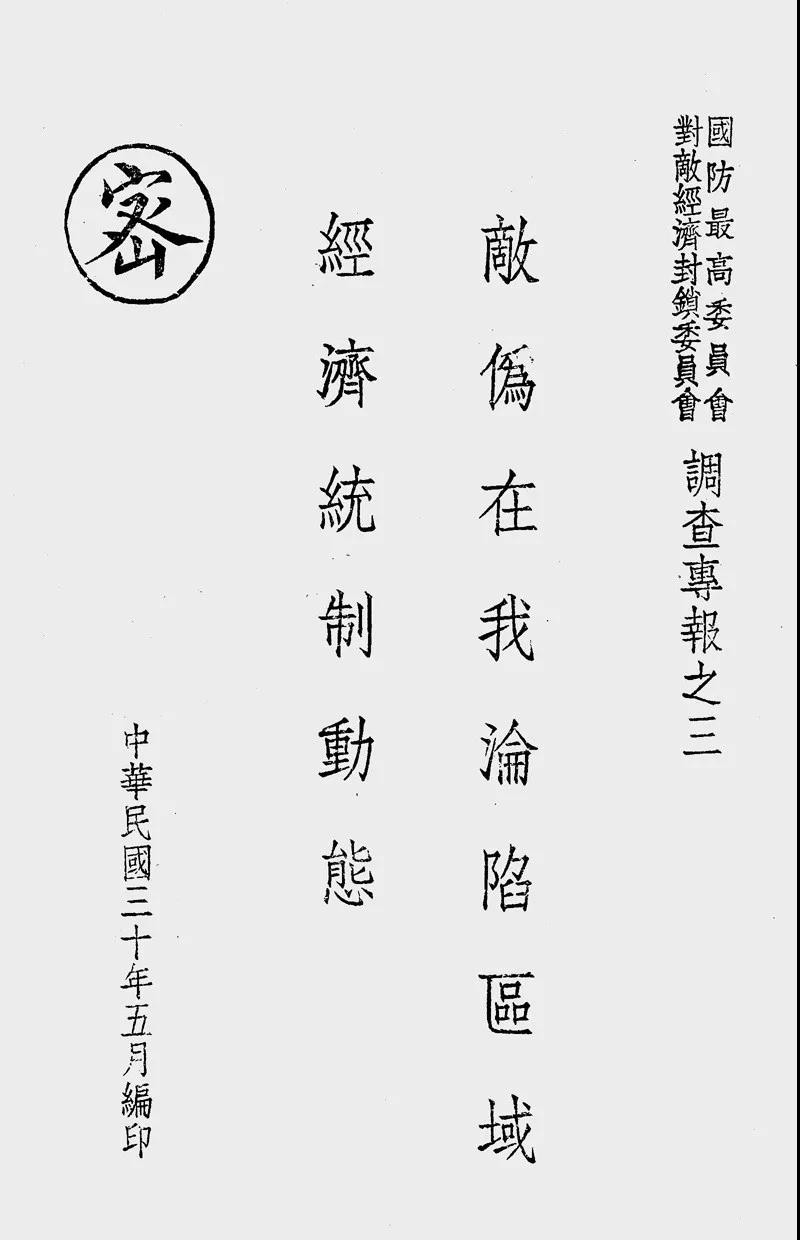 國防最高委員會
對敵經濟封鎖委員會
調查專報之三
敵偽在我淪陷區域
經濟統制動態
密
中華民國三十年五月編印